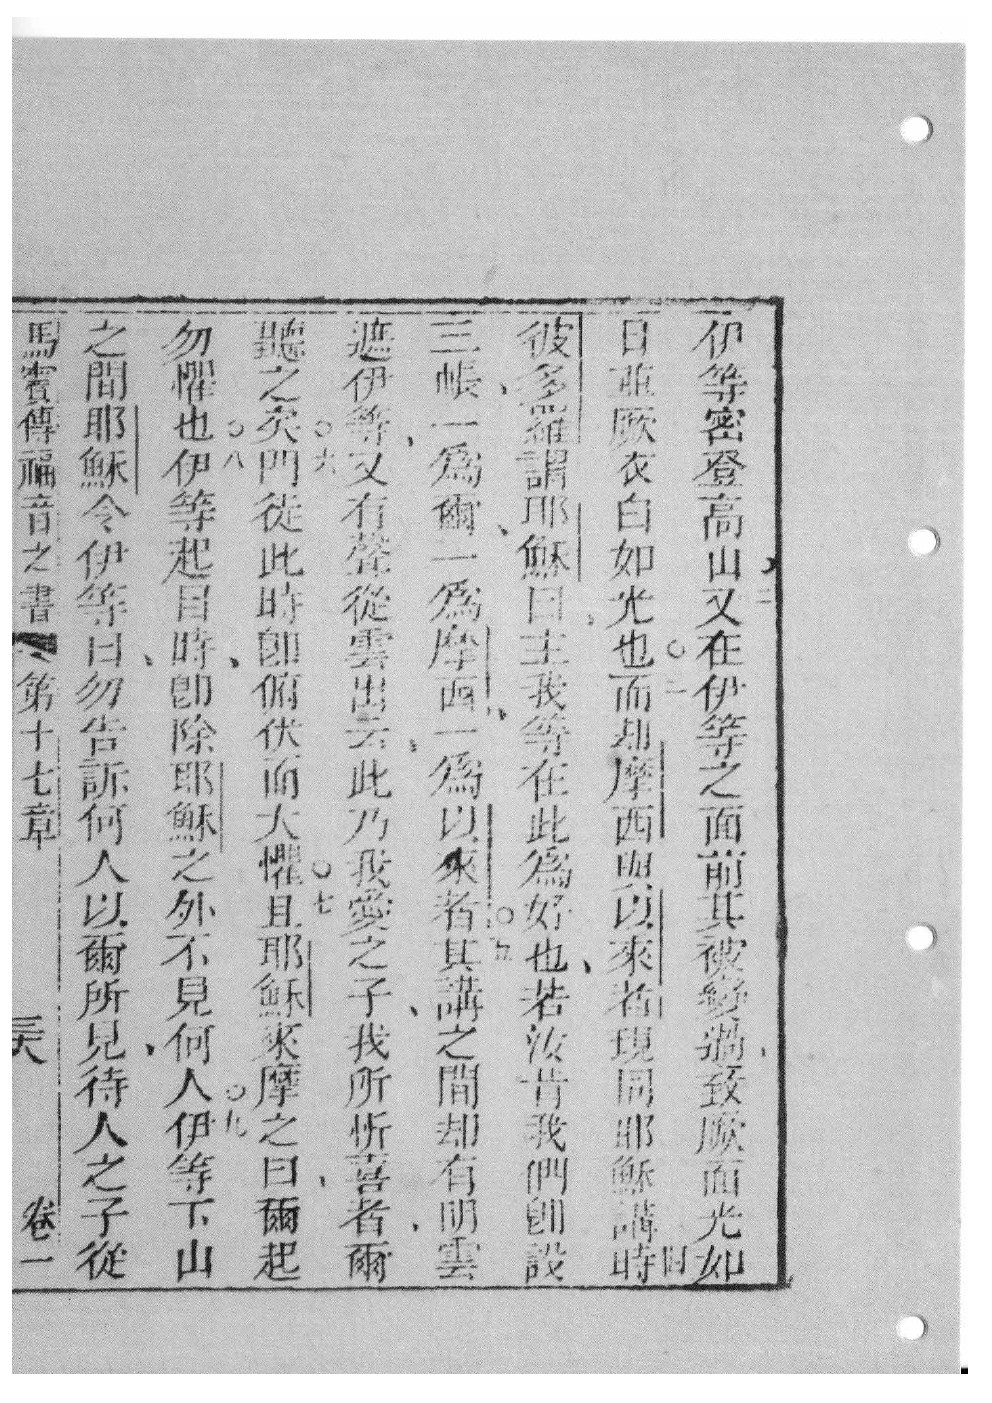 伊等密登高山又在伊等之面前其被變猧致厥面光如
二
日並厥衣白如光也而却摩西與以來者現同耶穌講時
○三
四
彼多羅謂耶穌曰主我等在此為好也若汝肯我們卽設
三帳一爲爾一爲摩西一爲以來者其講之間却有明雲
○五
遮伊等又有聲從雲出云此乃我愛之子我所忻喜者爾
聽之矣門徒此時卽俯伏面大懼且耶穌來摩之曰爾起
○六
○七
勿懼也伊等起目時卽除耶穌之外不見何人伊等下山
○八
○九
之間耶穌令伊等曰勿告訴何人以爾所見待人之子從
馬竇傳福音之書 第十七章 卷一